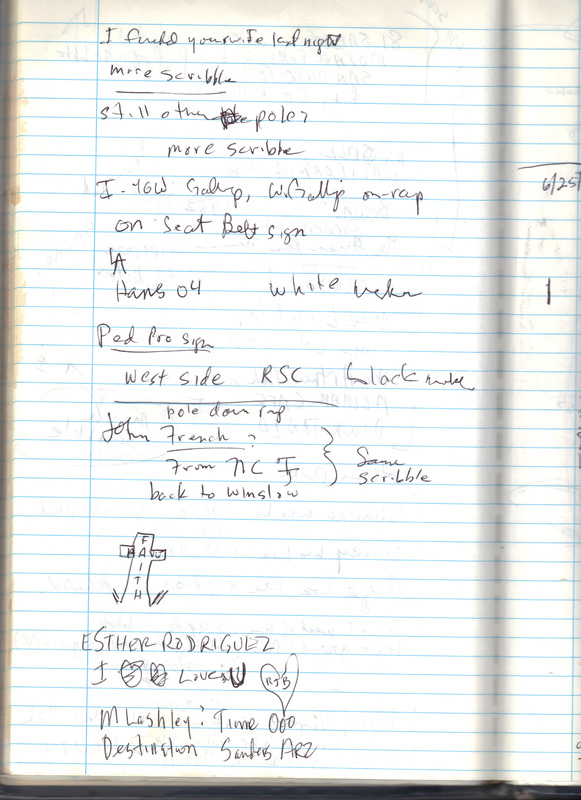 I fucked your wife last night
more scribble
still other pole?
more scribble
I-40W Gallup, W. Gallup on-rap
6/25
on Seat Belt sign
LA
Hans 04 White
1
Ped Pro sign
West side RSC black
pole down rap
John French ?
From NC
Same
scribble
back to Winslow
FAITH
ESTHER RODRIGUEZ
I LOVES U R+B
M Lashley: Time 000
Destination Sanders ARZ